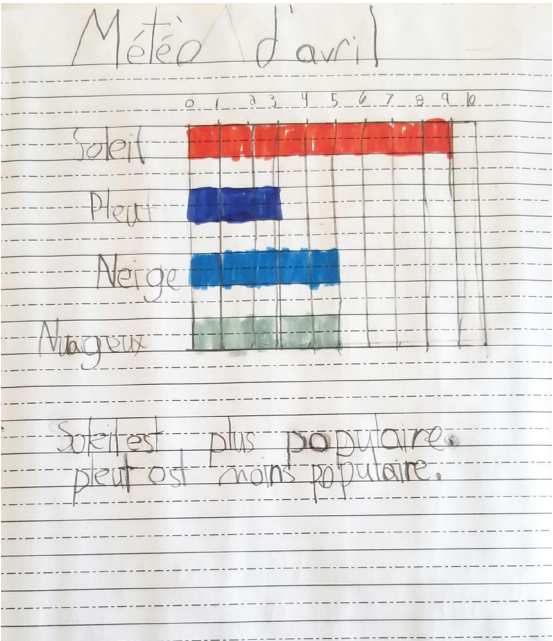 Météo d'avril
0 1 2 3 4 5 6 7 8 9 10
Soleil
Pleut
Neige
Nuageux
Soleil est plus populaire.
pleut est moins populaire.